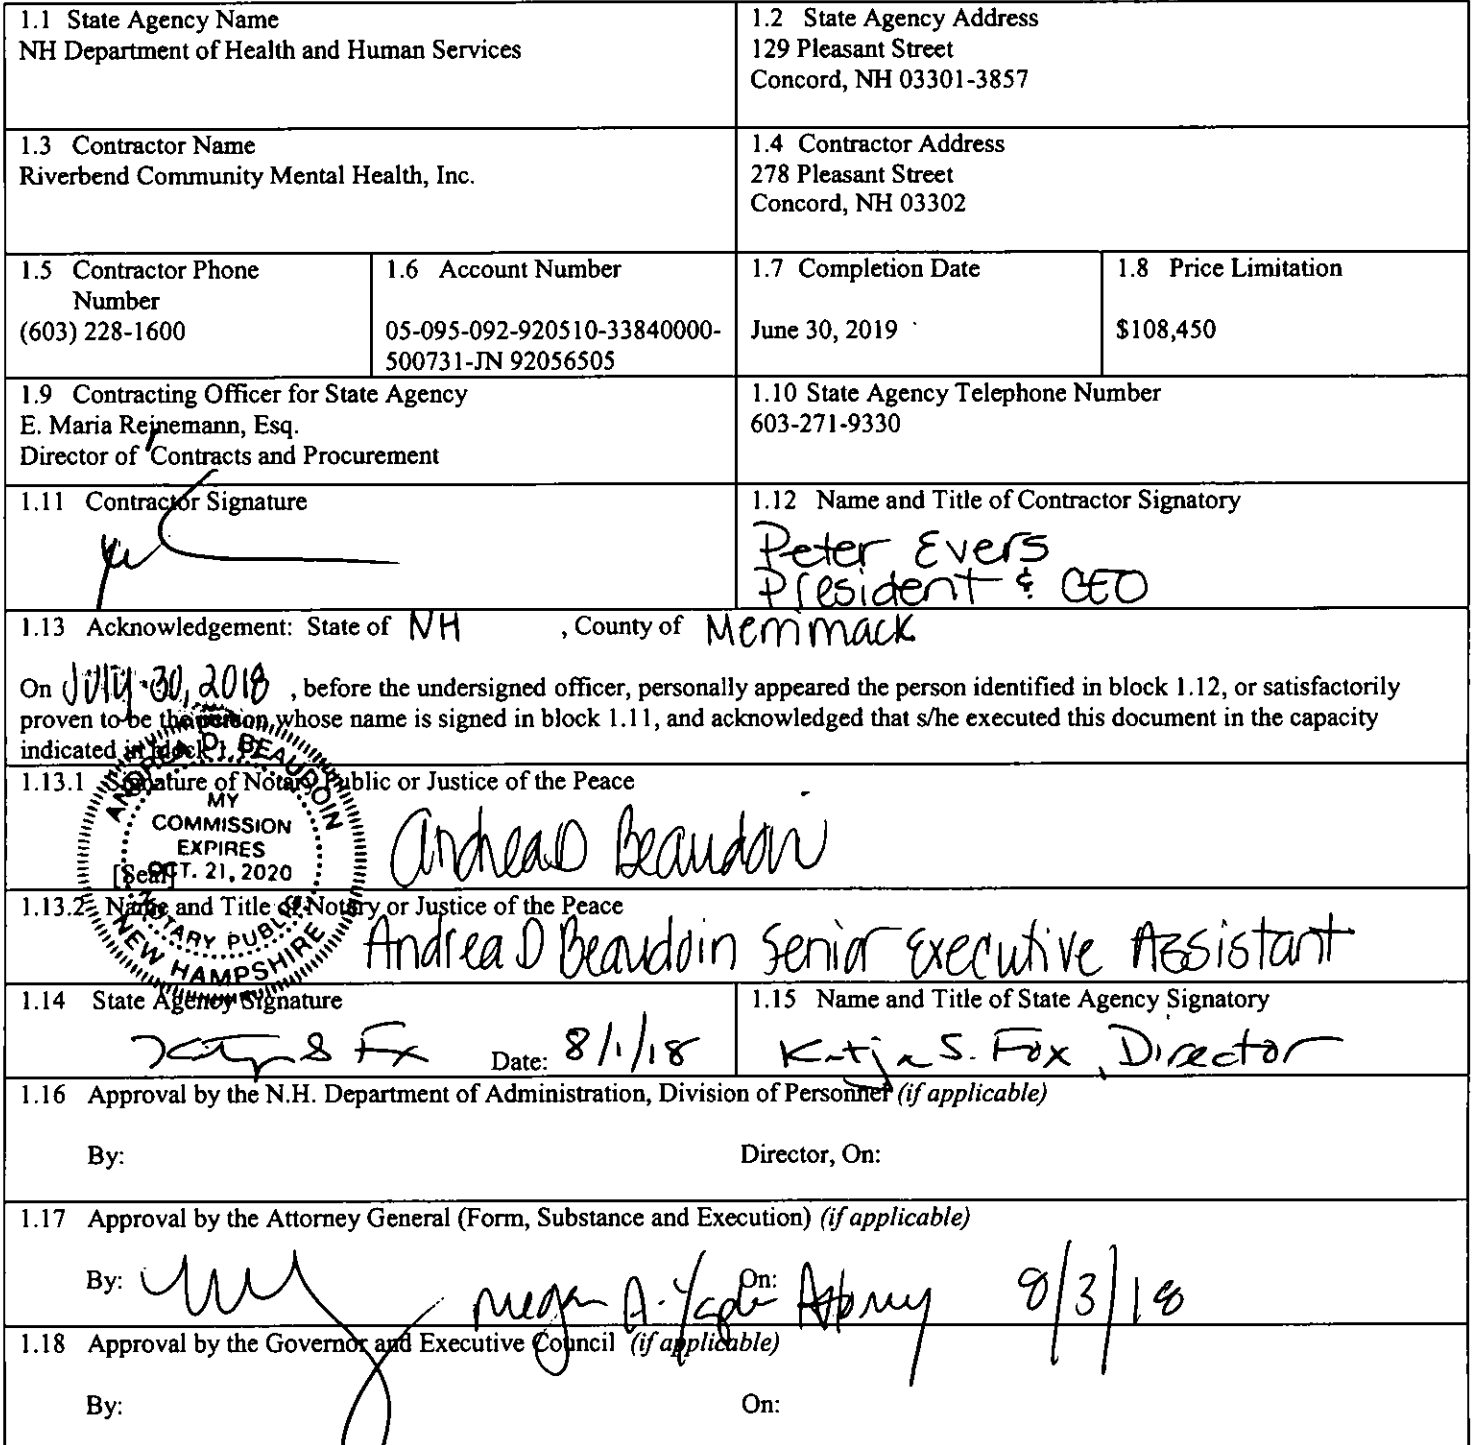 1.1 State Agency Name
NH Department of Health and Human Services
1.2 State Agency Address
129 Pleasant Street
Concord, NH 03301-3857
1.3 Contractor Name
Riverbend Community Mental Health, Inc.
1.4 Contractor Address
278 Pleasant Street
Concord, NH 03302
1.5 Contractor Phone
Number
(603) 228-1600
1.6 Account Number
05-095-092-920510-33840000-
500731-JN 92056505
1.7 Completion Date
June 30, 2019
1.8 Price Limitation
$108,450
1.9 Contracting Officer for State Agency
E. Maria Reinemann, Esq.
Director of Contracts and Procurement
1.10 State Agency Telephone Number
603-271-9330
1.11 Contractor Signature
1.12 Name and Title of Contractor Signatory
Peter Evers
President & CEO
1.13 Acknowledgement: State of NH , County of Merrimack
On July 30, 2018 , before the undersigned officer, personally appeared the person identified in block 1.12, or satisfactorily
proven to be the person whose name is signed in block 1.11, and acknowledged that s/he executed this document in the capacity
indicated in block 1.12
1.13.1 Signature of Notary Public or Justice of the Peace
ANDREA D. BEAUDOIN
MY
COMMISSION
EXPIRES
OCT. 21, 2020
NOTARY PUBLIC
NEW HAMPSHIRE
[Seal]
Andrea D Beaudoin
1.13.2 Name and Title of Notary or Justice of the Peace
Andrea D Beaudoin Senior Executive Assistant
1.14 State Agency Signature
Date: 8/1/18
1.15 Name and Title of State Agency Signatory
Katja S. Fox, Director
1.16 Approval by the N.H. Department of Administration, Division of Personnel (if applicable)
By: Director, On:
1.17 Approval by the Attorney General (Form, Substance and Execution) (if applicable)
By: Megan A. On: Attorney 8/3/18
1.18 Approval by the Governor and Executive Council (if applicable)
By: On: